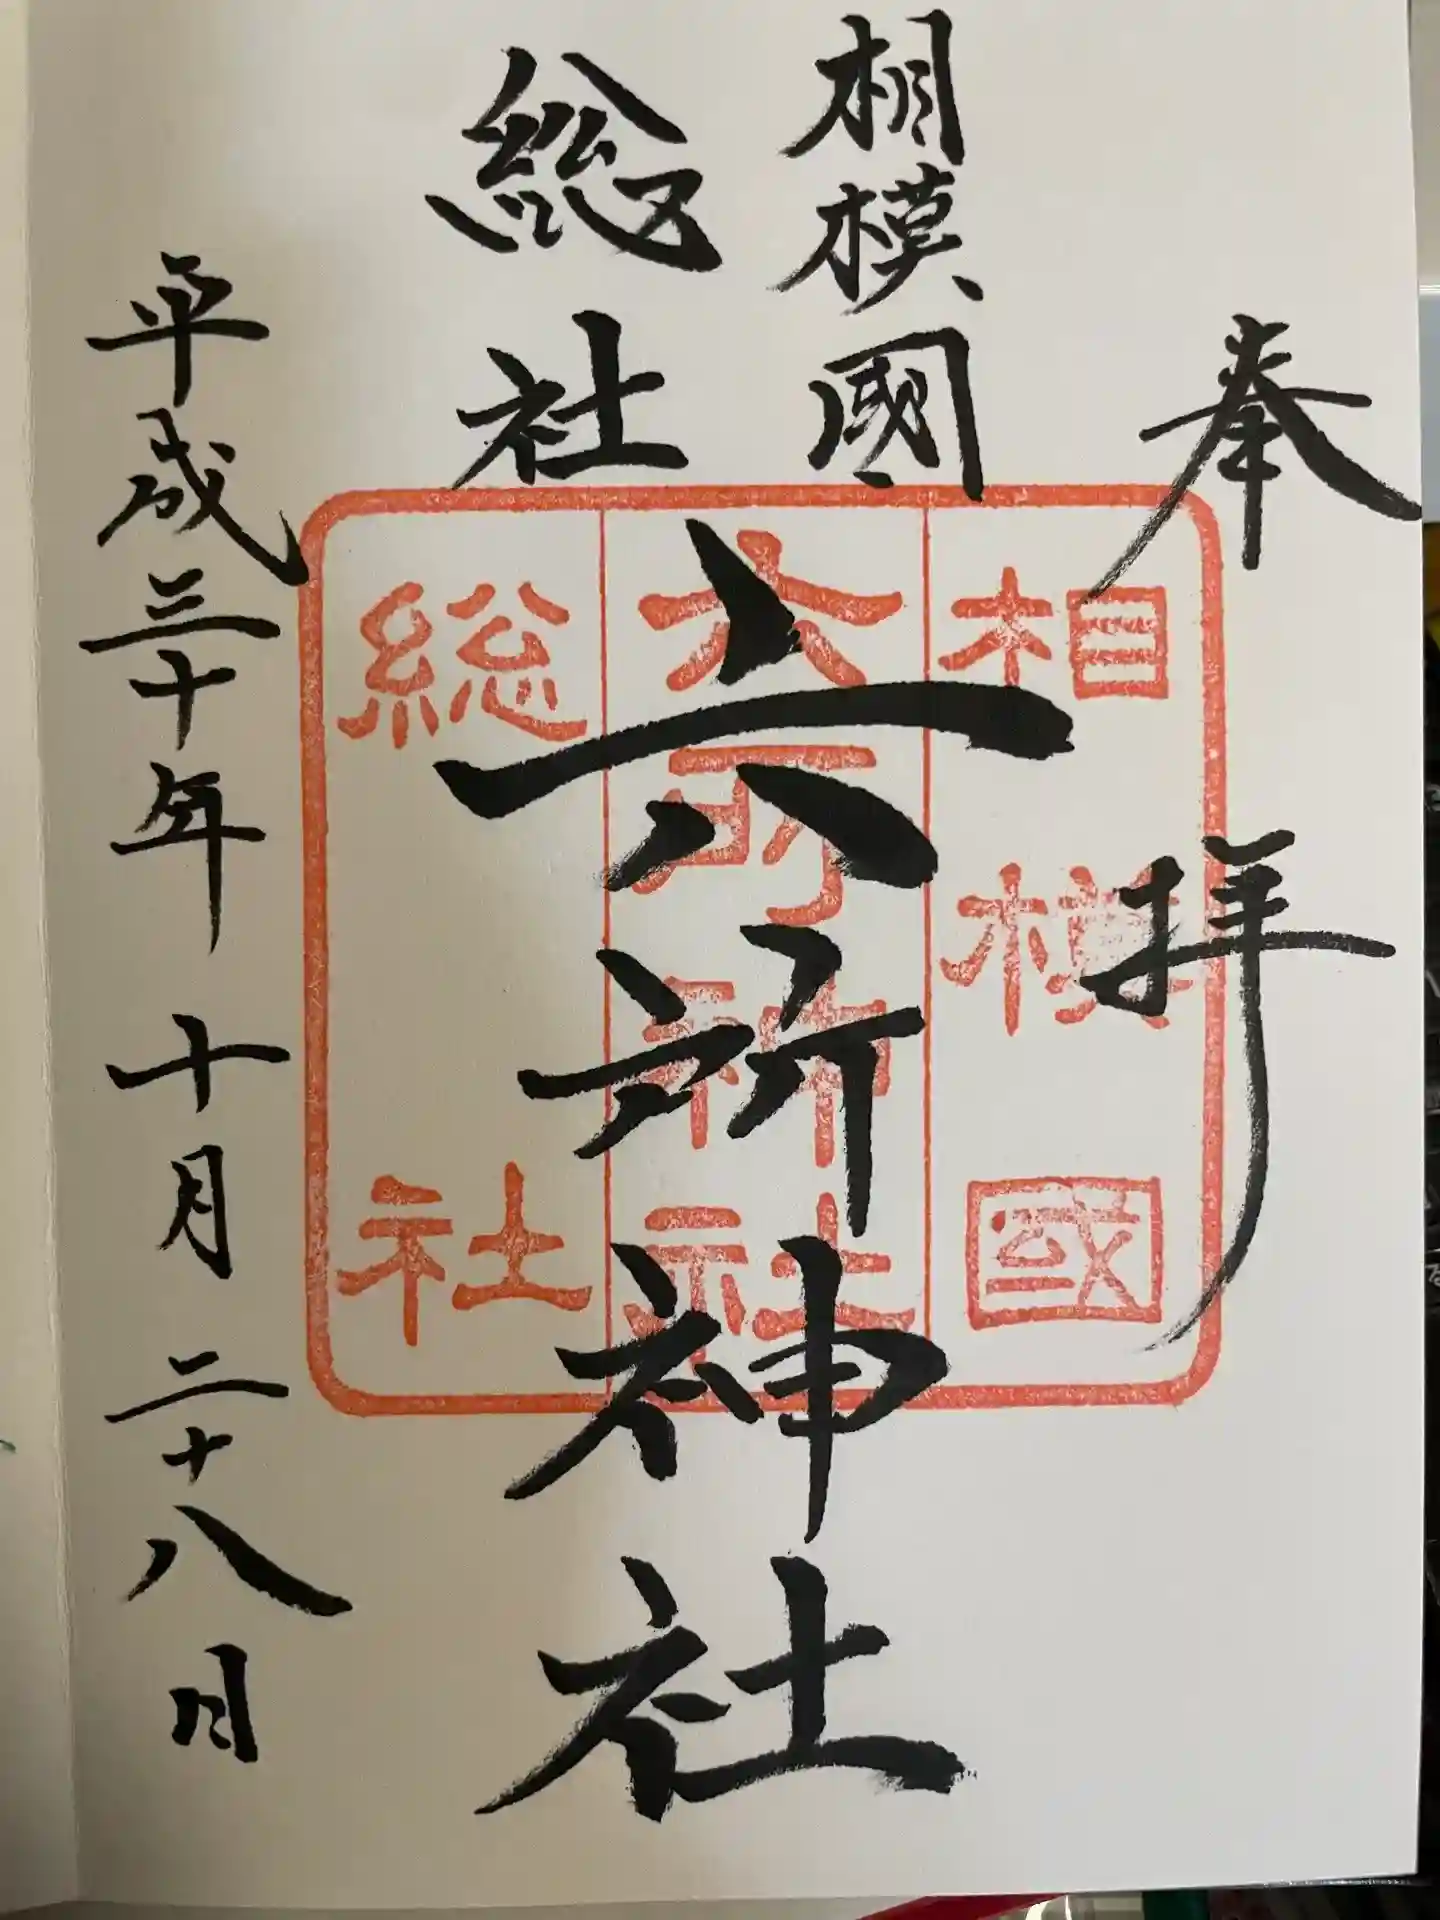 奉拝
相模國
総社
六所神社
平成三十年 十月 二十八日
相模國
六所神社
総社